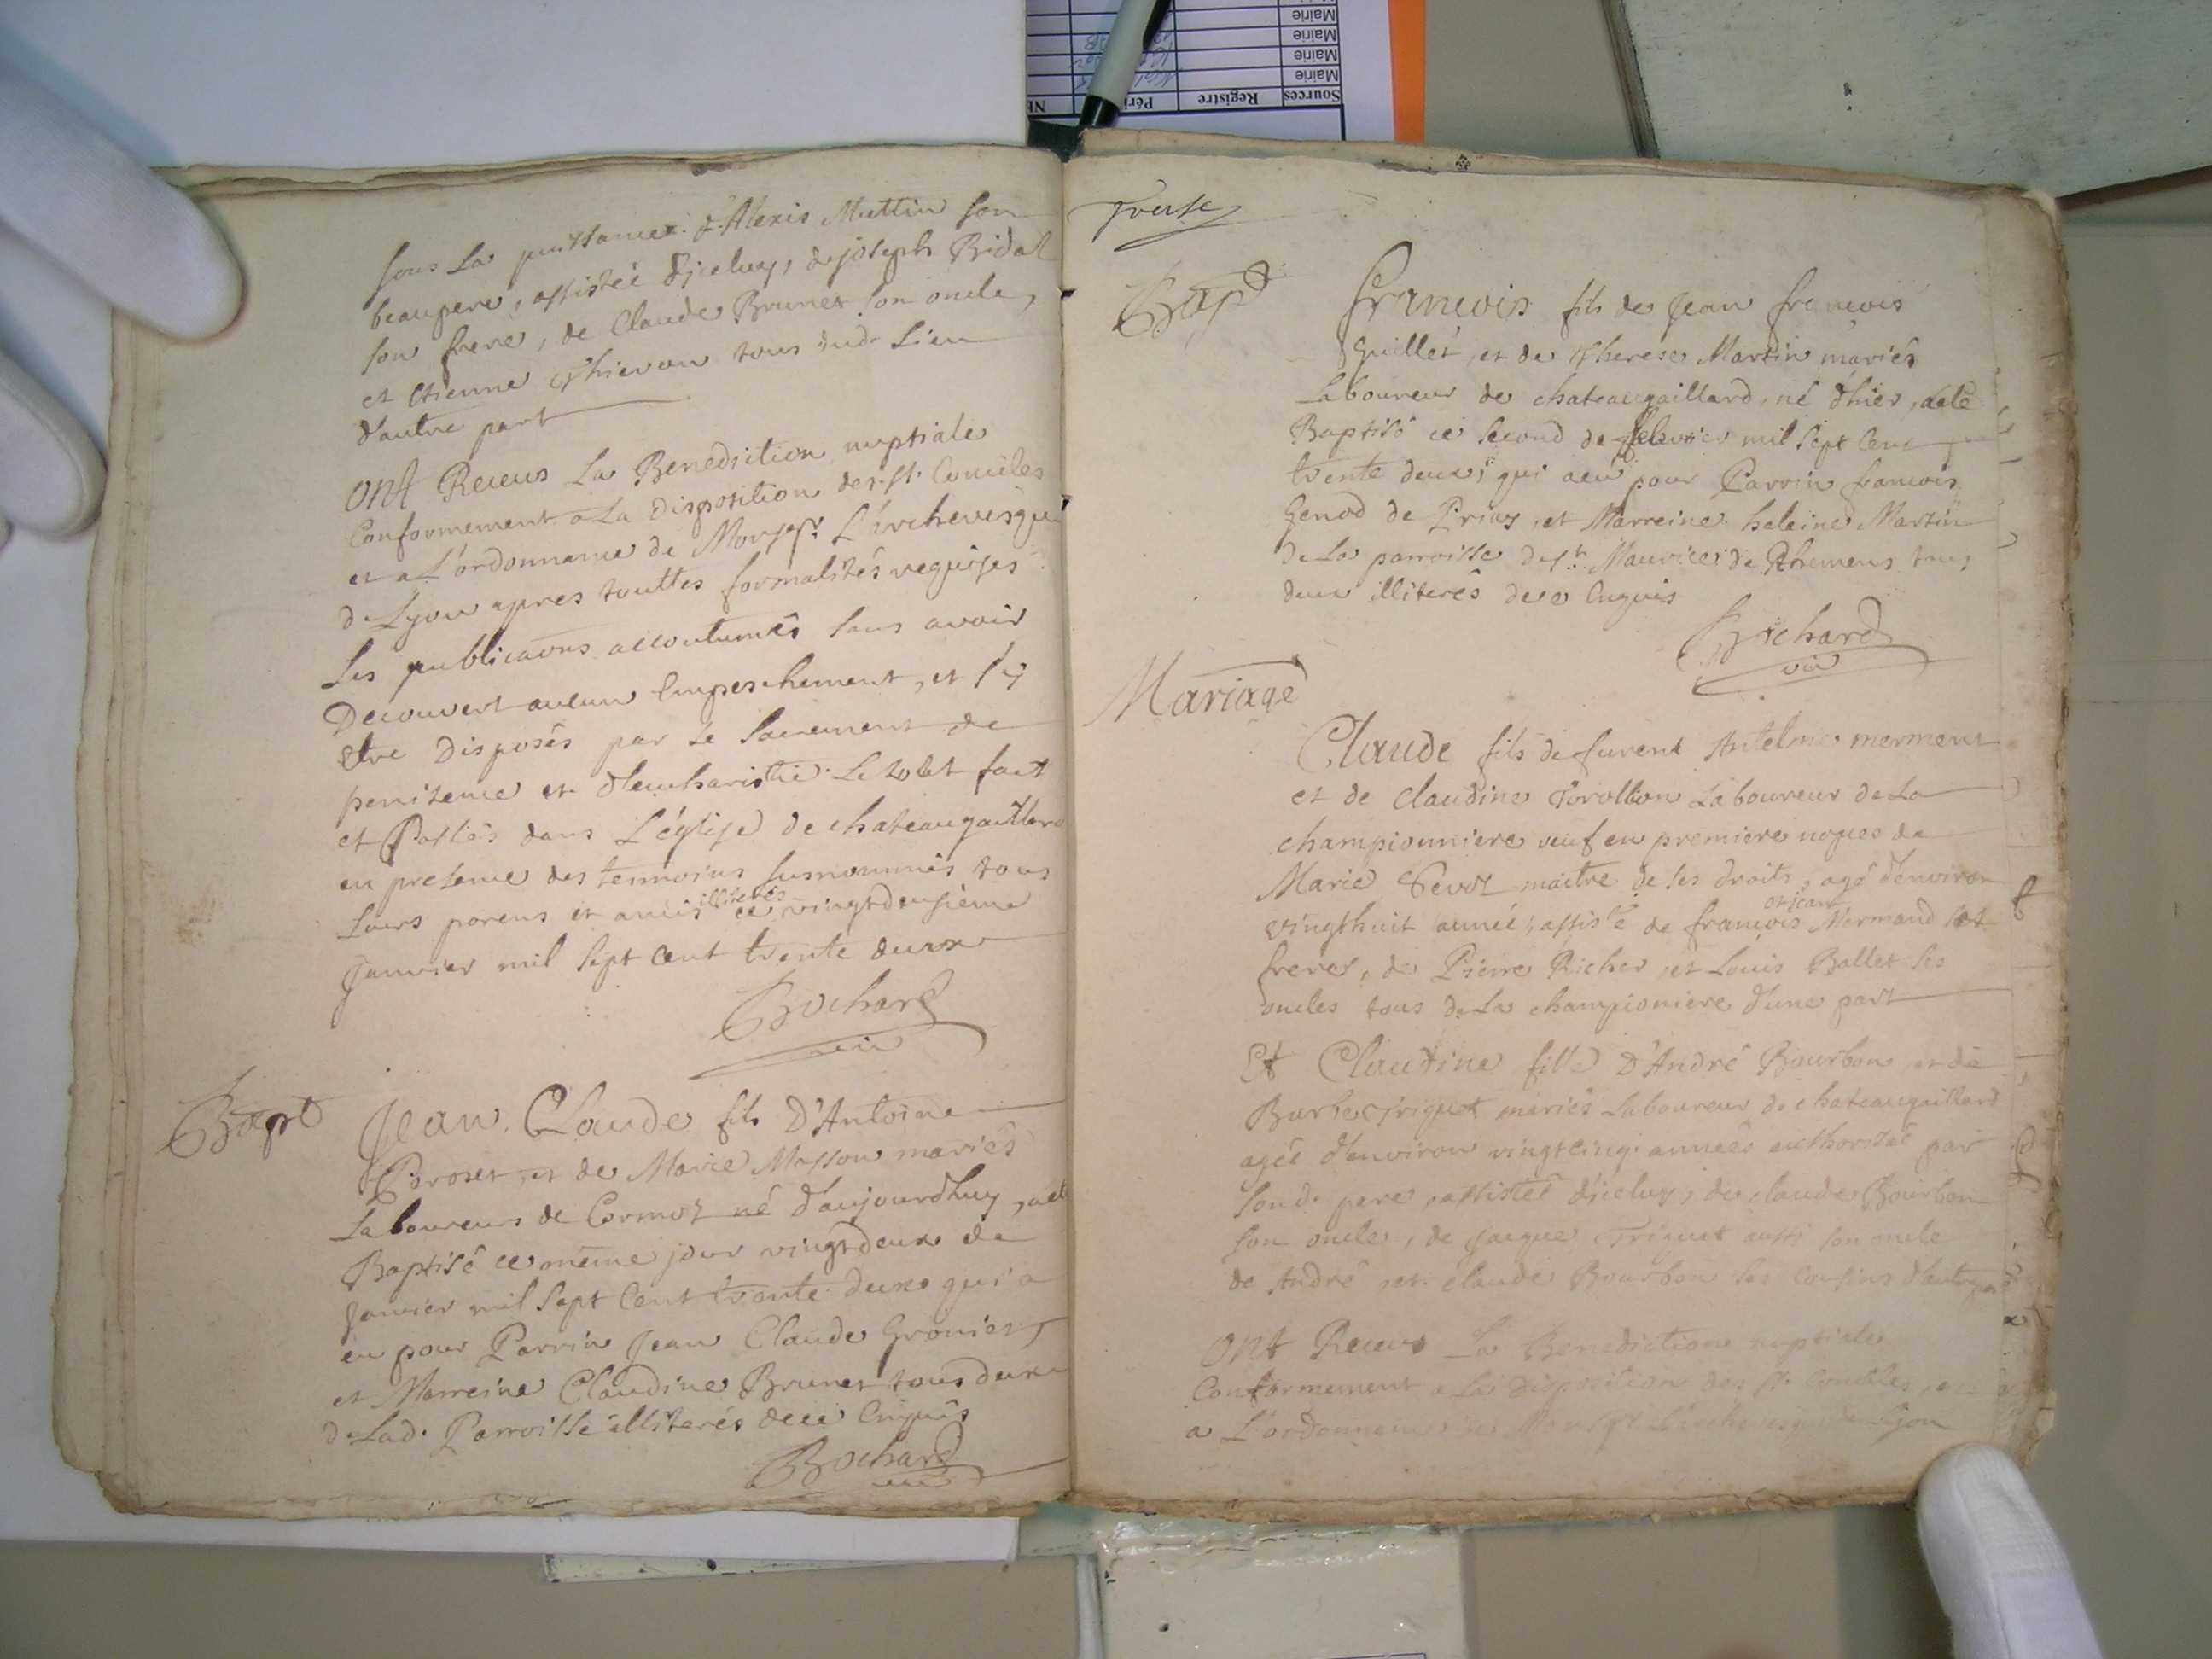 Sources Registre Péri
Mairie
Mairie
Mairie
Mairie
sous La puissance d'Alexis Muttin son
beaupere, assistée d'jceluy, de joseph Bidal
son frere, de Claude Brunet son oncle,
et Etienne Thievon tous dud. Lieu
d'autre part
ont Receus La Benediction nuptiale
Conformement a La Disposition des st. Conciles
et a L'ordonnance de Monsgr. L'archevesque
de Lyon apres touttes formalités requises
Les publicaons accoutumés sans avoir
Decouvert aucun Empeschement, et s'ej
Etre Disposés par Le sacrement de
penitence et d'eucharistie. Le tout fait
et Passés dans L'église de chateaugaillard
en presence des temmoins susnommés tous
Leurs parens et amis illiterés ce vingtdeusième
Janvier mil sept cent trente deux
Bochard
vic
Bapt
Jean Claude fils D'Antoine
Broset, et de Marie Masson mariés
Laboureurs de Cormoz né d'aujourdhuy, aeté
Baptisé ce même jour vingtdeux de
Janvier mil sept Cent trente deux qui a
eu pour Parrin Jean Claude Gronier,
et Marreine Claudine Brunet tous deux
de Lad. Parroisse illiterés de ce Enquis
Bochard
vic
treise
Bapt
françois fils de Jean françois
Guillet, et de Therese Martin mariés
Laboureur de chateaugaillard, né d'hier, aeté
Baptisé ce second de febvrier mil sept Cent
trente deux, qui aeu pour Parrin françois
Genod de Priay, et Marreine heleine Martin
de La parroisse de st. Maurice de Rhemens tous
deux illiterés de ce Enquis
Bochard
vic
Mariage
Claude fils de furent Antelme merment
et de Claudine Torollion Laboureur de La
championniere veuf en premiere noçes de
Marie Pevoz maitre de ses droits, agé d'environ
vingthuit année, assisté de françois et jean Mermand ses
freres, de Pierre Richer, et Louis Ballet ses
oncles tous de La championiere d'une part
Et Claudine fille D'André Bourbon, et de
Barbe Triquet mariés Laboureur de chateaugaillard
agée d'environ vingtcinq années authorisée par
sond. pere, assistée d'iceluy, de claude Bourbon
son oncle, de jacque Triquet aussi son oncle
de André, et claude Bourbon ses Cousins d'autre part
ont Receus La Benediction nuptiale
Conformement a La Disposition des st. Conciles, et
a L'ordonnance de Monsgr. L'archevesque de Lyon